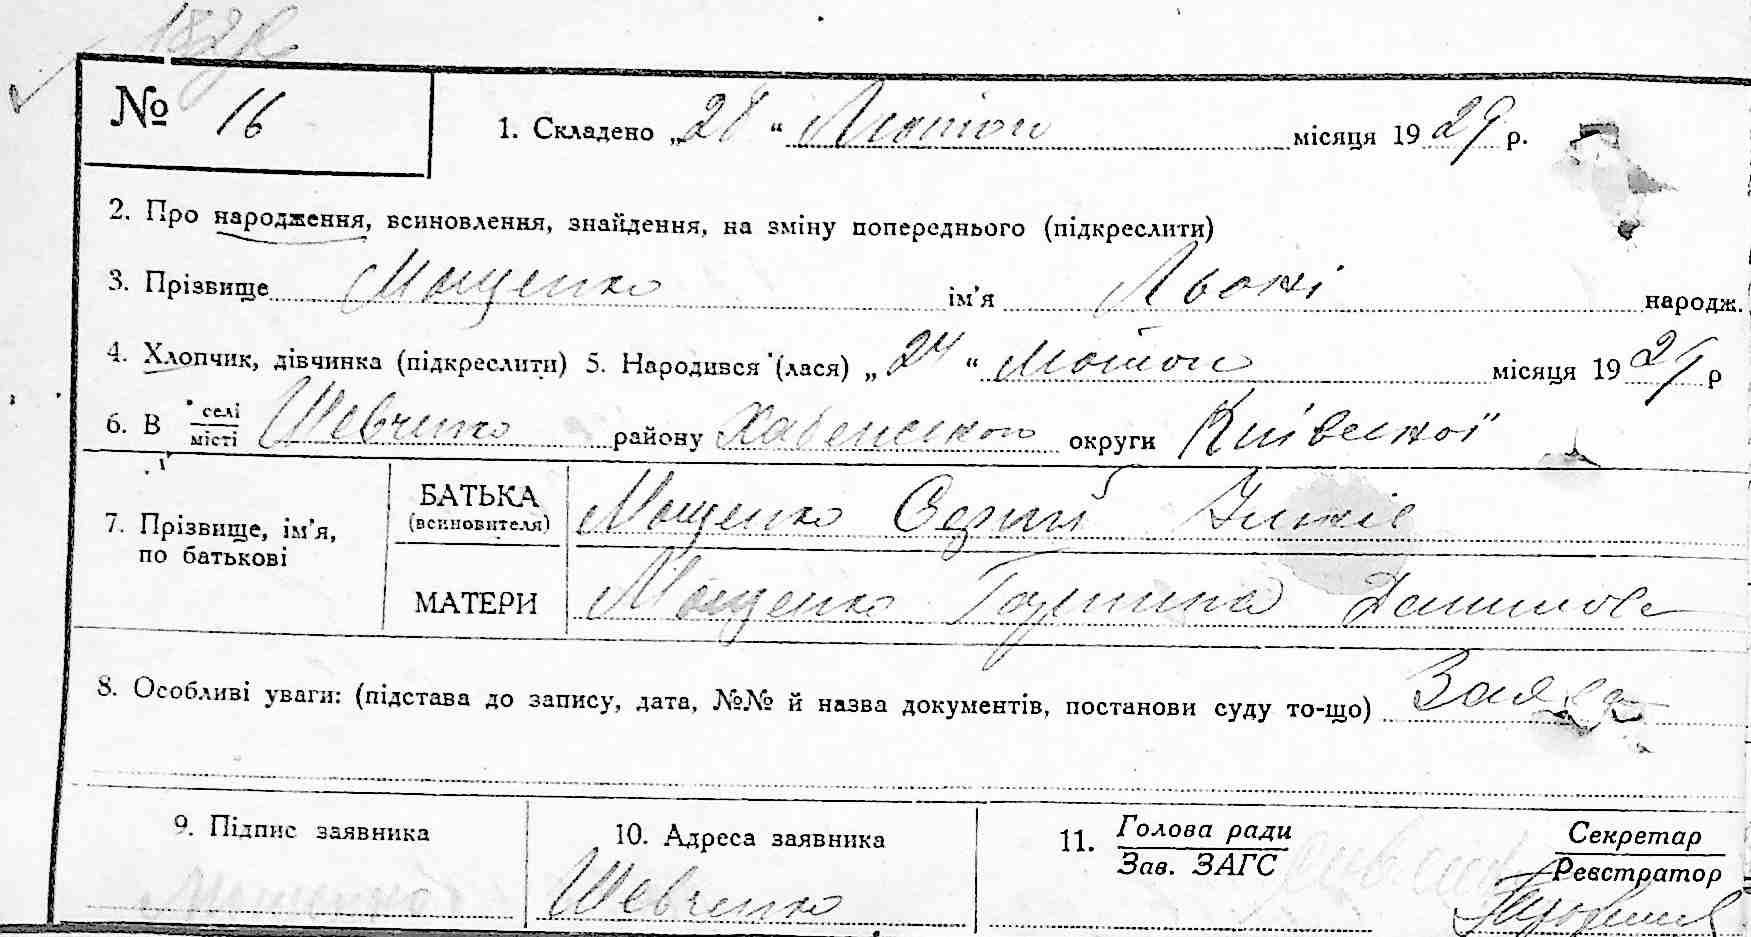 № 16
1. Складено „28“ Лютого місяця 1929 р.
2. Про народження, всиновлення, знайдення, на зміну попереднього (підкреслити)
3. Прізвище Мощенко ім'я народж.
4. Хлопчик, дівчинка (підкреслити) 5. Народився (лася) „24“ Лютого місяця 1929 р
6. В селі місті Шевченко району Хабенського округи Київської
7. Прізвище, ім'я, по батькові
БАТЬКА (всиновителя) Мощенко Сергий
МАТЕРИ Мощенко Горпина Данилов
8. Особливі уваги: (підстава до запису, дата, №№ й назва документів, постанови суду то-що) Заява
9. Підпис заявника 10. Адреса заявника 11. Голова ради Секретар
Зав. ЗАГС Реєстратор
Мощенко Шевченко